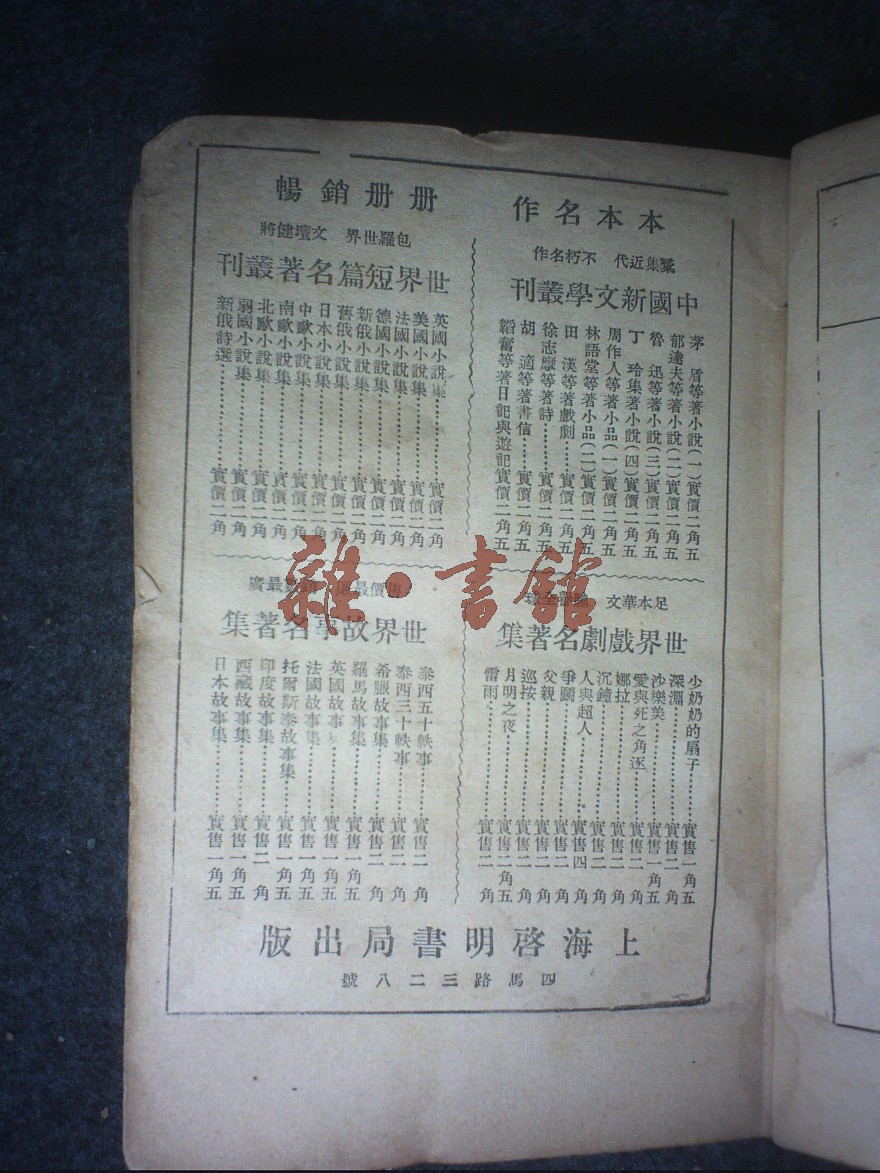 本本名作
彙集近代 不朽名作
中國新文學叢刊
茅盾等著小說(一)實價二角五
郁達夫等著小說(二)實價二角五
魯迅等著小說(三)實價二角五
丁玲集著小說(四)實價二角五
周作人等著小品(一)實價二角五
林語堂等著小品(二)實價二角五
田漢等著戲劇……實價二角五
徐志摩等著詩……實價二角五
胡適等著書信……實價二角五
韜奮等著日記與遊記實價二角五
冊冊銷暢
包羅世界 文壇健將
世界短篇名著叢刊
英國小說集……實價二角
美國小說集……實價二角
法國小說集……實價二角
德國小說集……實價二角
新俄小說集……實價二角
舊俄小說集……實價二角
日本小說集……實價二角
中歐小說集……實價二角
南歐小說集……實價二角
北歐小說集……實價二角
弱國小說集……實價二角
新俄詩選……實價二角
足本華文
世界戲劇名著集
少奶奶的扇子……實售一角五
深淵……實售二角
沙樂美……實售一角五
愛與死之角逐……實售二角
娜拉……實售二角
沉鐘……實售二角
人與超人……實售四角
爭鬭……實售二角
父親……實售二角
巡按……實售二角
月明之夜……實售一角五
雷雨……實售二角
售價最 數最廣
世界故事名著集
泰西五十軼事……實售二角
泰西三十軼事……實售二角
希臘故事集……實售二角
羅馬故事集……實售一角五
英國故事……實售一角五
法國故事集……實售一角五
托爾斯泰故事集……實售一角五
印度故事集……實售二角
西藏故事集……實售一角五
日本故事集……實售一角五
上海啓明書局出版
四馬路三二八號
雜·書館